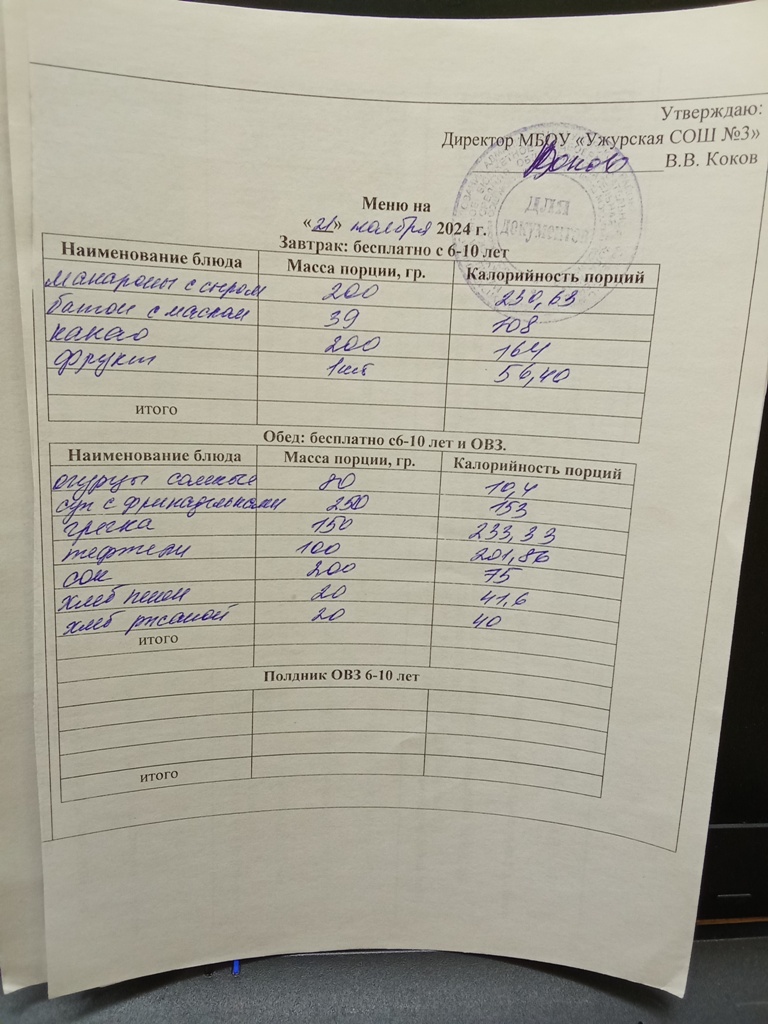 Утверждаю:
Директор МБОУ «Ужурская СОШ №3»
В.В. Коков
для
документов
Меню на
«21» ноября 2024 г.
Завтрак: бесплатно с 6-10 лет
Наименование блюда Масса порции, гр. Калорийность порций
макароны с сыром 200 230,63
батон с маслом 39 108
какао 200 164
фрукт 1шт 56,40
итого
Обед: бесплатно с6-10 лет и ОВЗ.
Наименование блюда Масса порции, гр. Калорийность порций
огурцы соленые 80 10,4
суп с фрикадельками 250 153
гречка 150 233,33
тефтели 100 201,86
сок 200 75
хлеб пшен 20 41,6
хлеб ржаной 20 40
итого
Полдник ОВЗ 6-10 лет
итого